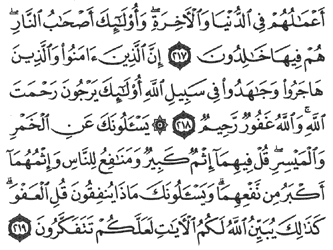 أَعْمَٰلُهُمْ فِى ٱلدُّنْيَا وَٱلْءَاخِرَةِ ۖ وَأُو۟لَٰٓئِكَ أَصْحَٰبُ ٱلنَّارِ ۖ
هُمْ فِيهَا خَٰلِدُونَ ﴿٢١٧﴾ إِنَّ ٱلَّذِينَ ءَامَنُوا۟ وَٱلَّذِينَ
هَاجَرُوا۟ وَجَٰهَدُوا۟ فِى سَبِيلِ ٱللَّهِ أُو۟لَٰٓئِكَ يَرْجُونَ رَحْمَتَ
ٱللَّهِ ۚ وَٱللَّهُ غَفُورٌ رَّحِيمٌ ﴿٢١٨﴾ ۞ يَسْـَٔلُونَكَ عَنِ ٱلْخَمْرِ
وَٱلْمَيْسِرِ ۖ قُلْ فِيهِمَآ إِثْمٌ كَبِيرٌ وَمَنَٰفِعُ لِلنَّاسِ وَإِثْمُهُمَآ
أَكْبَرُ مِن نَّفْعِهِمَا ۗ وَيَسْـَٔلُونَكَ مَاذَا يُنفِقُونَ قُلِ ٱلْعَفْوَ ۗ
كَذَٰلِكَ يُبَيِّنُ ٱللَّهُ لَكُمُ ٱلْءَايَٰتِ لَعَلَّكُمْ تَتَفَكَّرُونَ ﴿٢١٩﴾